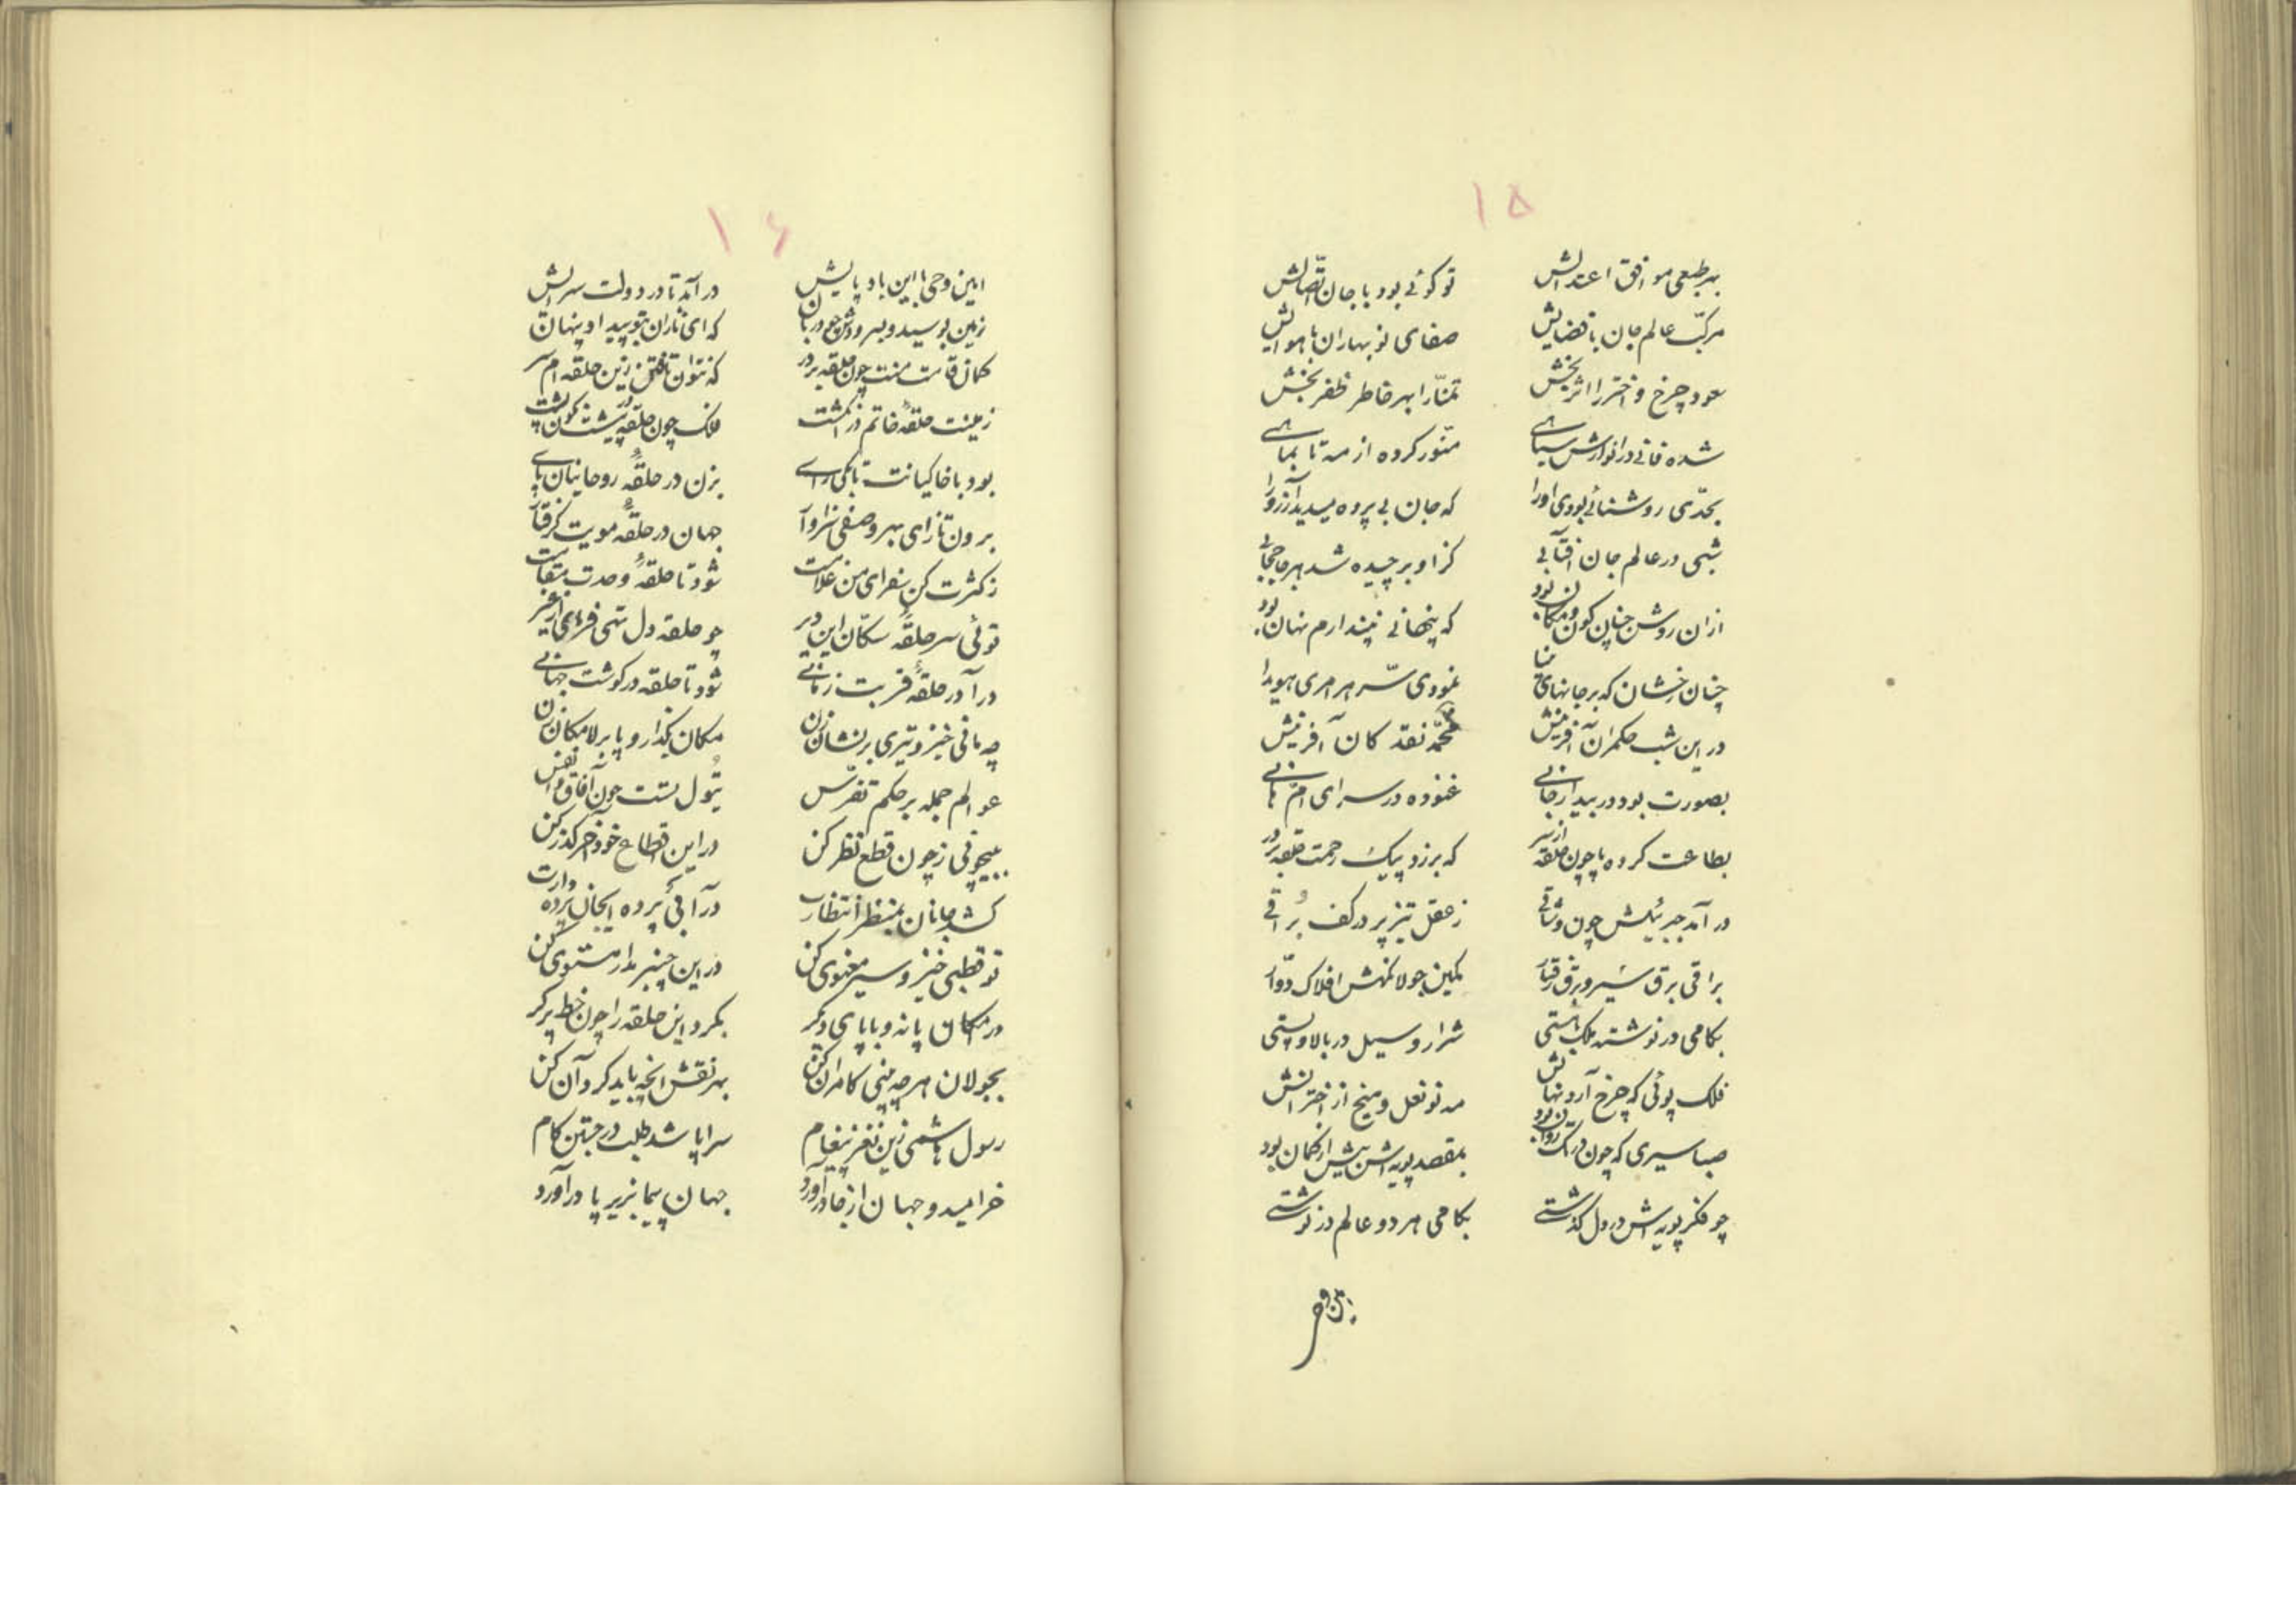 ۱۵
بهر طبعی موافق اعتدالش تو گوئی بود با جان اتّصالش
مرکّب عالم جان با فضایش صفای نوبهاران با هوایش
سعود چرخ و اختر را اثر بخش تمنّا را بهر خاطر ظفر بخش
شده فانی در انوارش سیاهی منّور کرده از مه تا بماهی
بحدّی روشنائی بودی او را که جان بی پرده میدید آرزو را
شبی در عالم جان آفتابی کز او برچیده شد هر جا حجابی
از ان روشن چنان کون و مکان بود که پنهانی نپندارم نهان بود
چنان رخشان که بر جانهای نمودی سّر هر امری هویدا
در این شب حکمران آفرینش محّمد نقد کان آفرینش
بصورت بود در بیدار غنوده در سرای امّ هانی
بطاعت کرده پا چون حلقه از سر که بر زد پیک رحمت حلقه بر در
در آمد جبرئیلش چون وثاقی ز عقل تیزپر در کف بُراقی
براقی برق سیر و برق رفتار کمین جولانگهش افلاک دوّار
بگامی در نوشته ملک هستی شرار و سیل در بالا و پستی
فلک پوئی که چرخ آرد نهانش مه نو نعل و میخ از اخترانش
صبا سیری که چون در تک روان بود بمقصد پویه اش پیش از گمان بود
چو فکر پویه اش در دل گذشتی بگامی هر دو عالم در نوشتی
۱۶
امین وحی با این باد پایش در آمد تا در دولت سرایش
زمین بوسید و بسرودش چو دربان که ای نازان بتو پیدا و پنهان
کمان قامت منت چون حلقه بر در که نتوان تافتن زین حلقه ام سر
زمینت حلقهٔ خاتم در انگشت فلک چون حلقه پیشت گوژ پشت
بود با خاکیانت تا بکی رای بزن در حلقهٔ روحانیان پای
برون تاز ای بهر وصفی سزاوار جهان در حلقهٔ مویت گرفتار
ز کثرت کن سفر ای من غلامت شود تا حلقهٔ وحدت مقامت
توئی سر حلقهٔ سکّان این دیر چو حلقه دل تهی فرمای از غیر
در آ در حلقهٔ قربت زمانی شود تا حلقه در گوشت جهانی
چه مانی خیز و تیری بر نشان زن مکان بگذار و پا بر لامکان زن
عوالم جمله بر حکم تفرّس تُیول تست چون آفاق و انفس
ببیچونی ز چون قطع نظر کن در این اقطاع خود آخر گذر کن
کشد جانان بمنظر انتظارت در آ فی پرده ای جان پرده دارت
تو قطبی خیز و سیر معنوی کن در این چنبر مدار مستوی کن
در امکان پا نه و با پای دیگر بگرد این حلقه را چون خط پرگر
بجولان هر چه بینی کامران کن بهر نقش آنچه باید کرد آن کن
رسول هاشمی زین نغز پیغام سراپا شد طلب در جستن کام
خرامید و جهان از جا در آورد جهان پیما بزیر پا در آورد